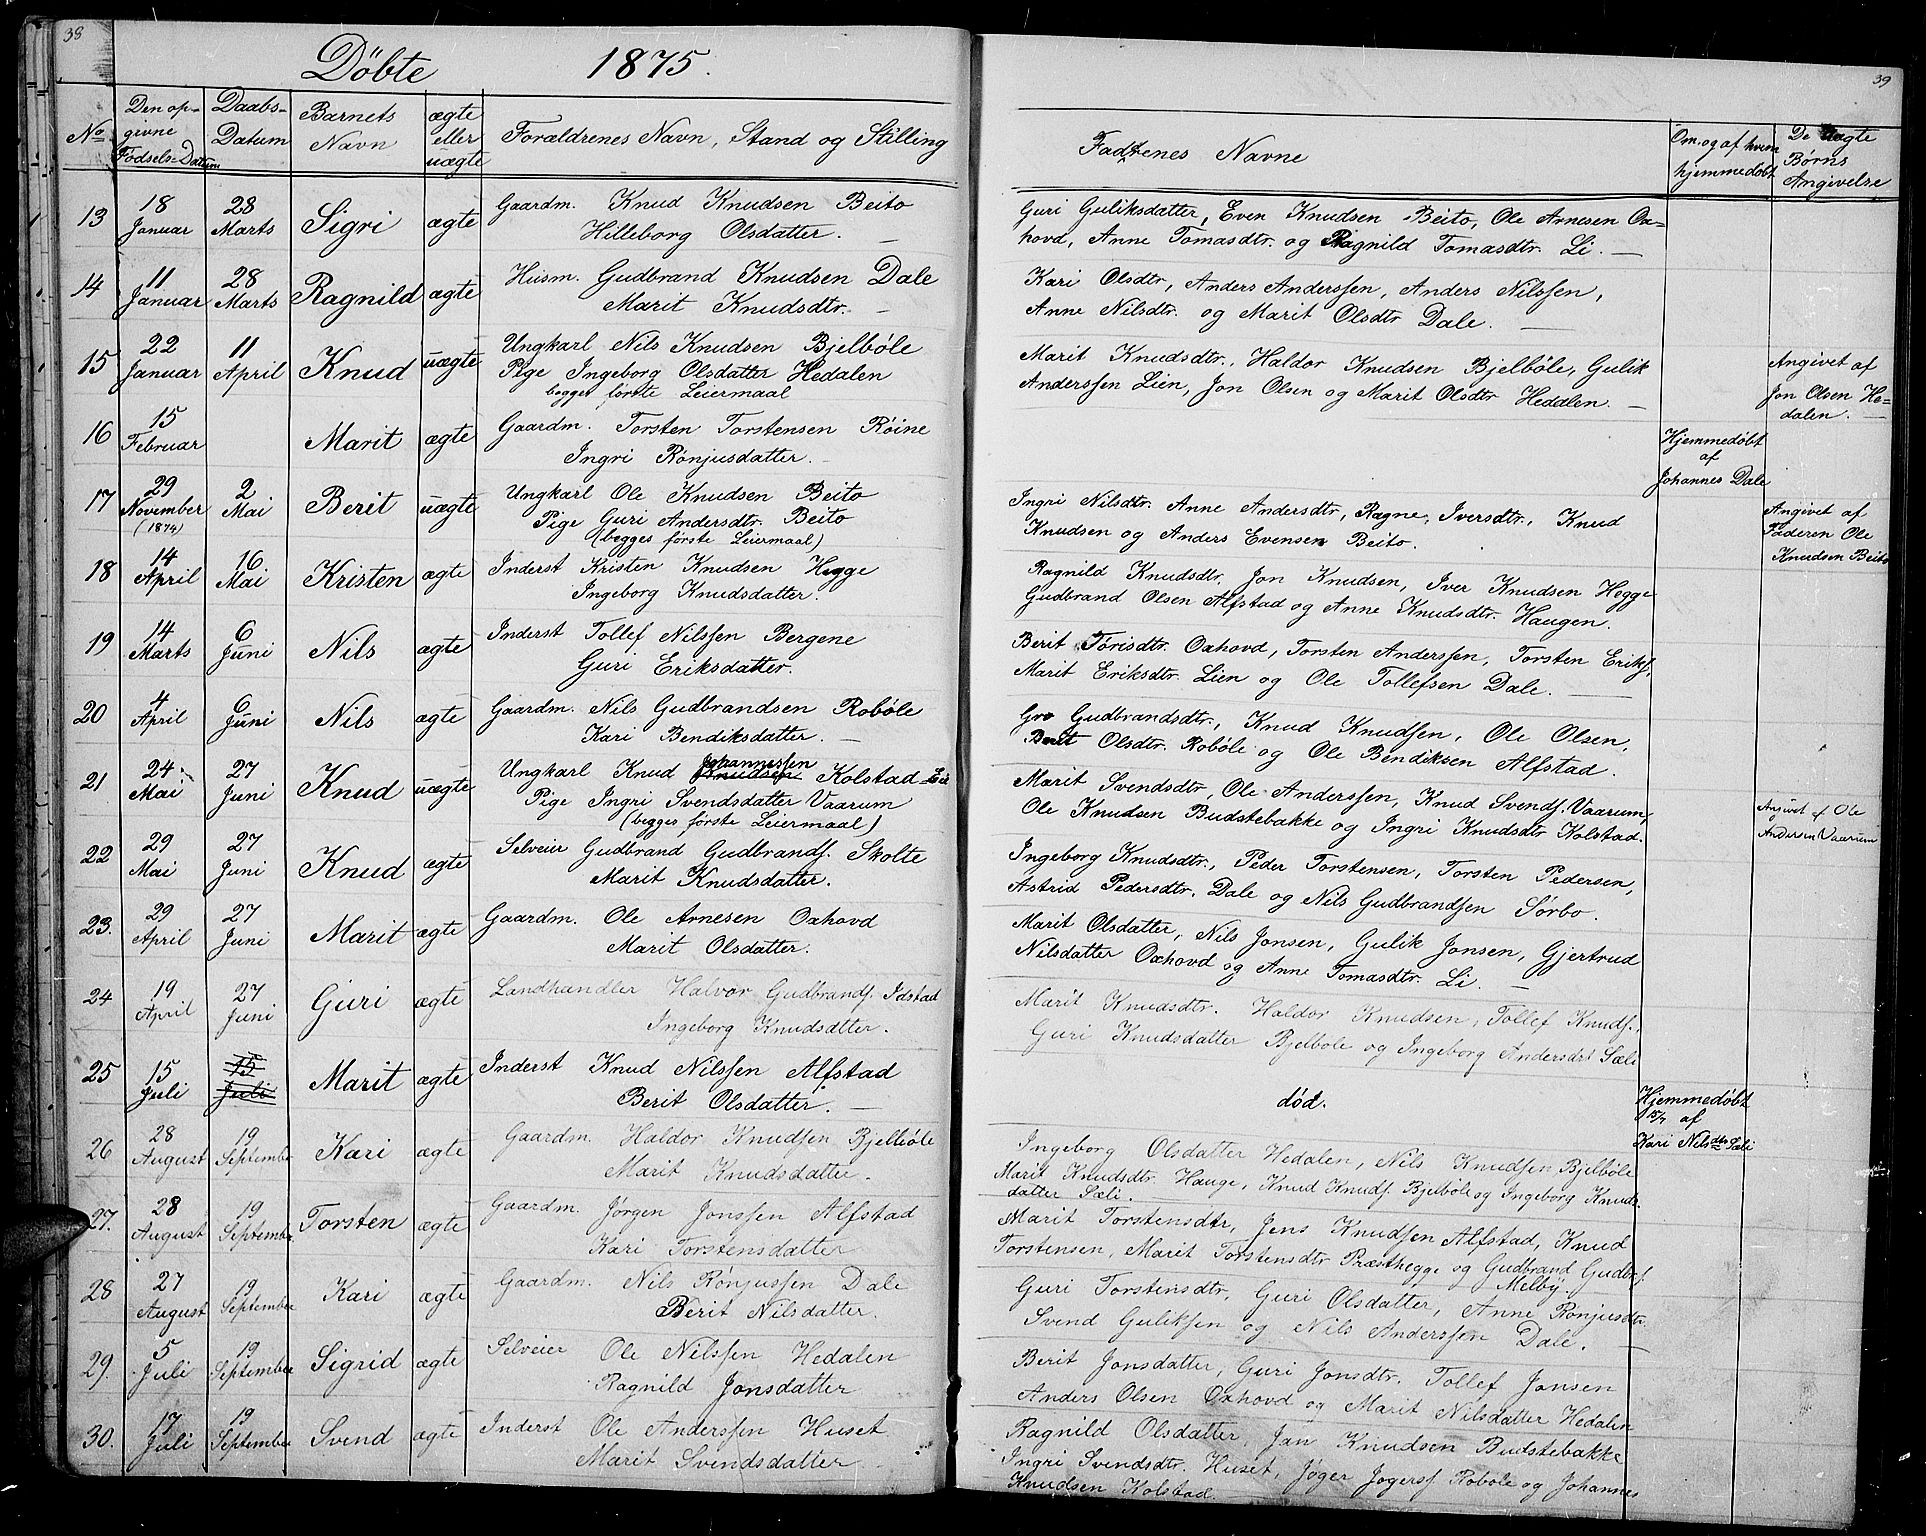 38
Döbte 1875.
No
Den op-
givne
Födsels-Datum
Daabs-
Datum
Barnets
Navn
ægte
eller
uægte
Foraldrenes Navn, Stand og Stilling
13
18
Januar
28
Marts
Sigri
ægte
Gaardm. Knud Knudsen Beito
Hilleborg Olsdatter.
14
11
Januar
28
Marts
Ragnild
ægte
Husm. Gudbrand Knudsen Dale
Marit Knudsdtr.
15
22
Januar
11
April
Knud
uægte
Ungkarl Nils Knudsen Bjelböle
Pige Ingeborg Olsdatter Hedalen
begges förste Leiermaal
16
15
Februar
Marit
ægte
Gaardm. Torsten Torstensen Röine
Ingri Rönjusdatter.
17
29
November
(1874)
2
Mai
Berit
uægte
Ungkarl Ole Knudsen Beito
Pige Guri Andersdtr. Beito
(begges förste Leiermaal)
18
14
April
16
Mai
Kristen
ægte
Inderst Kristen Knudsen Hegge
Ingeborg Knudsdatter.
19
14
Marts
6
Juni
Nils
ægte
Inderst Tollef Nilssen Bergene
Guri Eriksdatter.
20
4
April
6
Juni
Nils
ægte
Gaardm. Nils Gudbrandsen Roböle
Kari Bendiksdatter.
21
24
Mai
27
Juni
Knud
uægte
Johannessen
Ungkarl Knud Knudsen Kolstad
Pige Ingri Svendsdatter Vaarum
(begges förste Leiermaal)
22
29
Mai
27
Juni
Knud
ægte
Selveier Gudbrand Gudbrands. Skolte
Marit Knudsdatter.
23.
29
April
27
Juni
Marit
ægte
Gaardm. Ole Arnesen Oxhovd
Marit Olsdatter.
24
19
April
27
Juni
Guri
ægte
Landhandler Halvor Gudbrands. Idstad
Ingeborg Knudsdtter.
25
15
Juli
15
Juli
Marit
ægte
Inderst Knud Nilssen Alfstad
Berit Olsdatter.
26
28
August
19
September
Kari
ægte
Gaardm. Haldor Knudsen Bjelböle
Marit Knudsdatter.
27.
28
August
19
September
Torsten
ægte
Gaardm. Jörgen Jonssen Alfstad
Kari Torstensdatter
28
27
August
19
September
Kari
ægte
Gaardm. Nils Rönjussen Dale
Berit Nilsdatter.
29.
5
Juli
19
September
Sigrid
ægte
Selveier Ole Nilssen Hedalen
Ragnild Jonsdatter
30.
17
Juli
19
September
Svend
ægte
Inderst Ole Anderssen Huset
Marit Svendsdatter
39
Faddrenes Navne
Om, og af hvem
hjemmedöbt
De uægte
Börns
Angivelse
Guri Guliksdatter, Even Knudsen Beito, Ole Arnesen Ox=
hovd, Anne Tomasdtr. og Ragnild Tomasdtr. Li.
Kari Olsdtr, Anders Anderssen, Anders Nilssen,
Anne Nilsdtr. og Marit Olsdtr Dale.
Marit Knudsdtr., Haldor Knudsen Bjelböle, Gulik
Anderssen Lien, Jon Olsen og Marit Olsdtr Hedalen.
Angivet af
Jon Olsen He=
dalen.
Hjemmedöbt
af
Johannes Dale
Ingri Nilsdtr. Anne Andersdtr, Ragne, Iversdtr., Knud
Knudsen og Anders Evensen Beito.
Angivet af
Faderen Ole
Knudsen Beito
Ragnild Knudsdtr. Jon Knudsen, Iver Knudsen Hegge
Gudbrand Olsen Alfstad og Anne Knudsdtr. Haugen.
Berit Törisdtr. Oxhovd, Torsten Anderssen, Torsten Eriks.
Marit Eriksdtr. Lien og Ole Tollefsen Dale.
Gro Gudbrandsdtr., Knud Knudsen, Ole Olsen,
Berit Olsdtr. Roböle og Ole Bendiksen Alfstad.
Marit Svendsdtr, Ole Anderssen, Knud Svends. Vaarum,
Ole Knudsen Budstebakke og Ingri Knudsdtr Kolstad.
Angivet af Ole
Andersen Vaarum
Ingeborg Knudsdtr., Peder Torstensen, Torsten Pedersen,
Astrid Pedersdtr. Dale og Nils Gudbrandsen Sörbo.
Marit Olsdatter, Nils Jonsen, Gulik Jonsen, Gjertrud
Nilsdatter Oxhovd og Anne Tomasdtr. Li.
Marit Knudsdtr. Haldor Knudsen, Tollef Knuds.,
Guri Knudsdatter Bjelböle og Ingeborg Andersdtr Sæli
död.
Hjemmedöbt
15/7 af
Kari Nilsdtr Sæli
Ingeborg Olsdatter Hedalen, Nils Knudsen Bjelböle
Marit Knudsdtr. Hauge, Knud Knuds. Bjelböle og Ingeborg Knuds-
datter Sæli.
Marit Torstensdtr, Jens Knudsen Alfstad, Knud
Torstensen, Marit Torstensdtr Præsthegge og Gudbrand Gudbrs.
Melby.
Guri Torstensdtr, Guri Olsdatter, Anne Rönjusdtr.
Svend Guliksen og Nils Anderssen Dale.
Berit Jonsdatter, Guri Jonsdtr. Tollef Jonsen
Anders Olsen Oxhovd og Marit Nilsdatter Hedalen
Ragnild Olsdatter, Jan Knudsen Budstebakke
Ingri Svendsdtr. Huset, Jöger Jogers. Roböle og Johannes
Knudsen Kolstad.